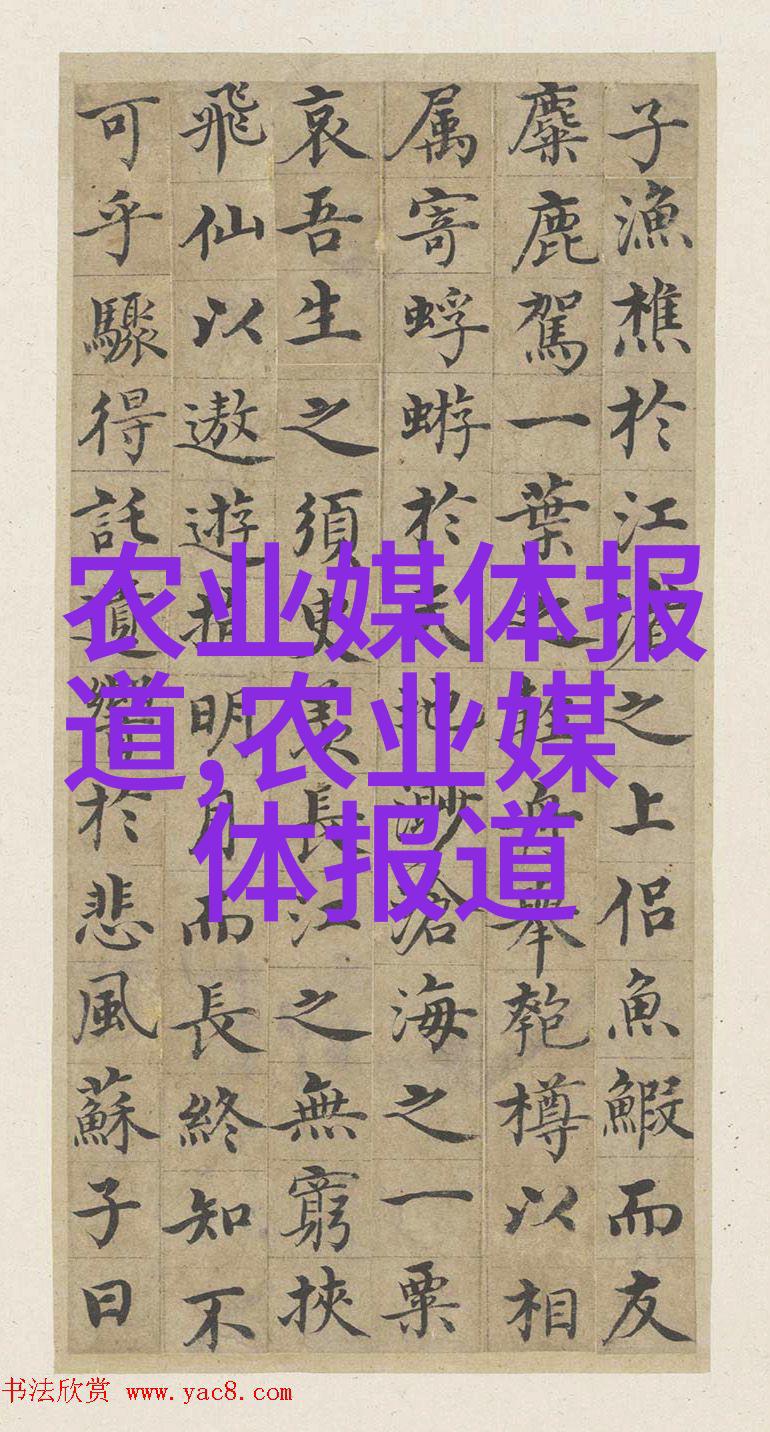 子漁樵於江渚之上侶魚鰕而友
麋鹿駕一葉之輕舟舉匏樽以相
属寄蜉蝣於天地渺滄海之一粟
哀吾生之須臾羨長江之無窮挾
飛仙以遨遊抱明月而長終知不
可乎驟得託遺響於悲風蘇子曰
农业媒体报
道,农业媒
体报道
书法欣赏 www.yac8.com